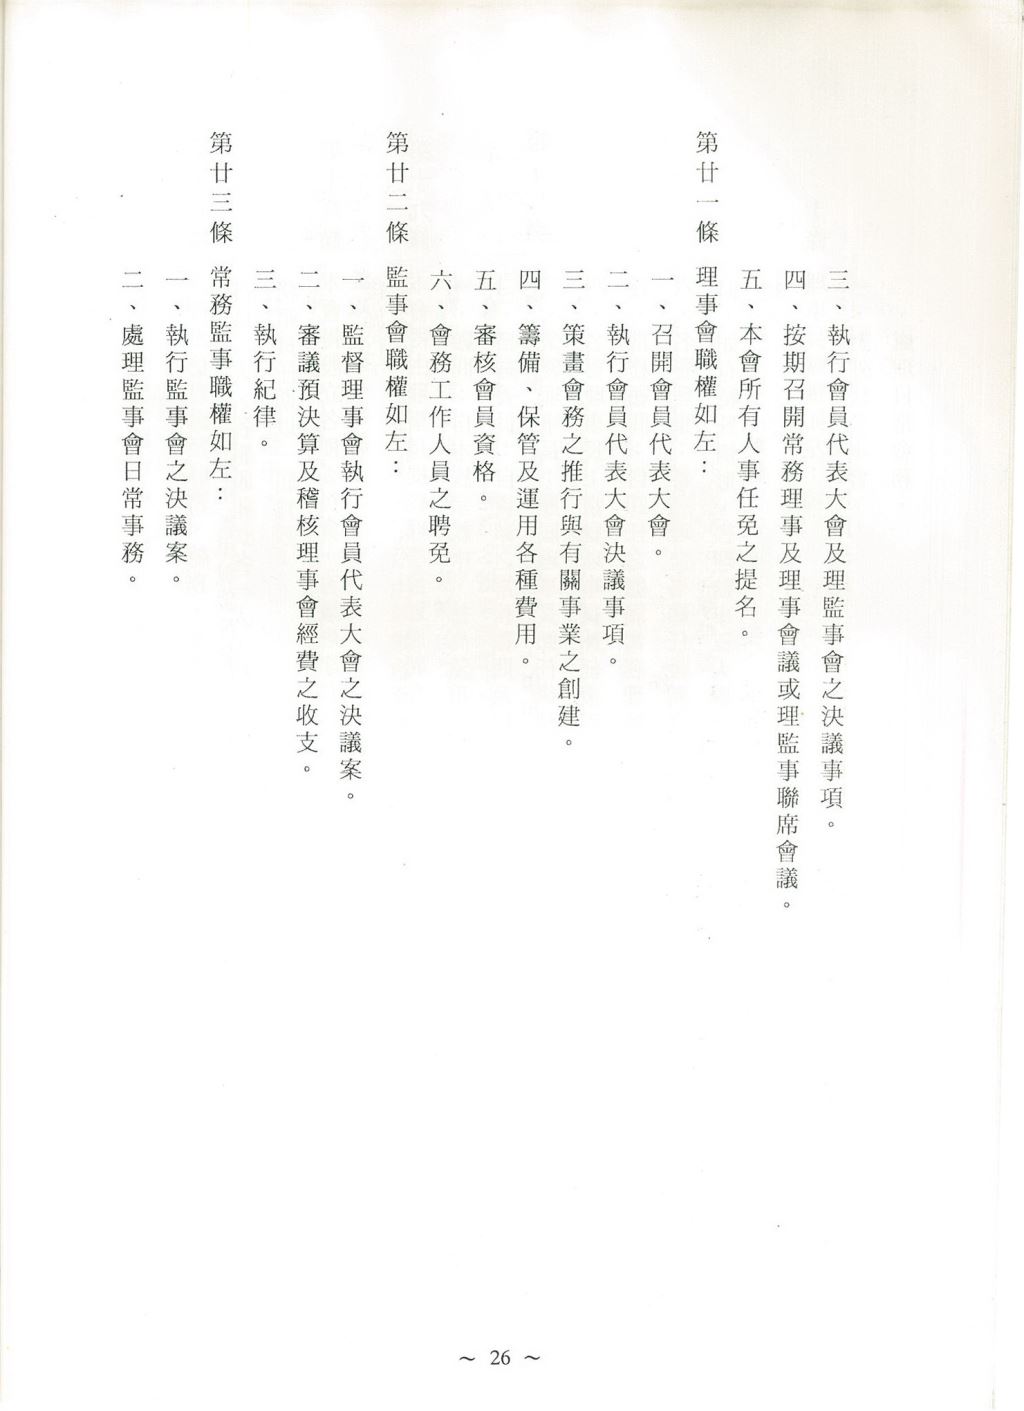 三、執行會員代表大會及理監事會之決議事項。
四、按期召開常務理事及理事會議或理監事聯席會議。
五、本會所有人事任免之提名。
第廿一條　理事會職權如左：
一、召開會員代表大會。
二、執行會員代表大會決議事項。
三、策畫會務之推行與有關事業之創建。
四、籌備、保管及運用各種費用。
五、審核會員資格。
六、會務工作人員之聘免。
第廿二條　監事會職權如左：
一、監督理事會執行會員代表大會之決議案。
二、審議預決算及稽核理事會經費之收支。
三、執行紀律。
第廿三條　常務監事職權如左：
一、執行監事會之決議案。
二、處理監事會日常事務。
～ 26 ～